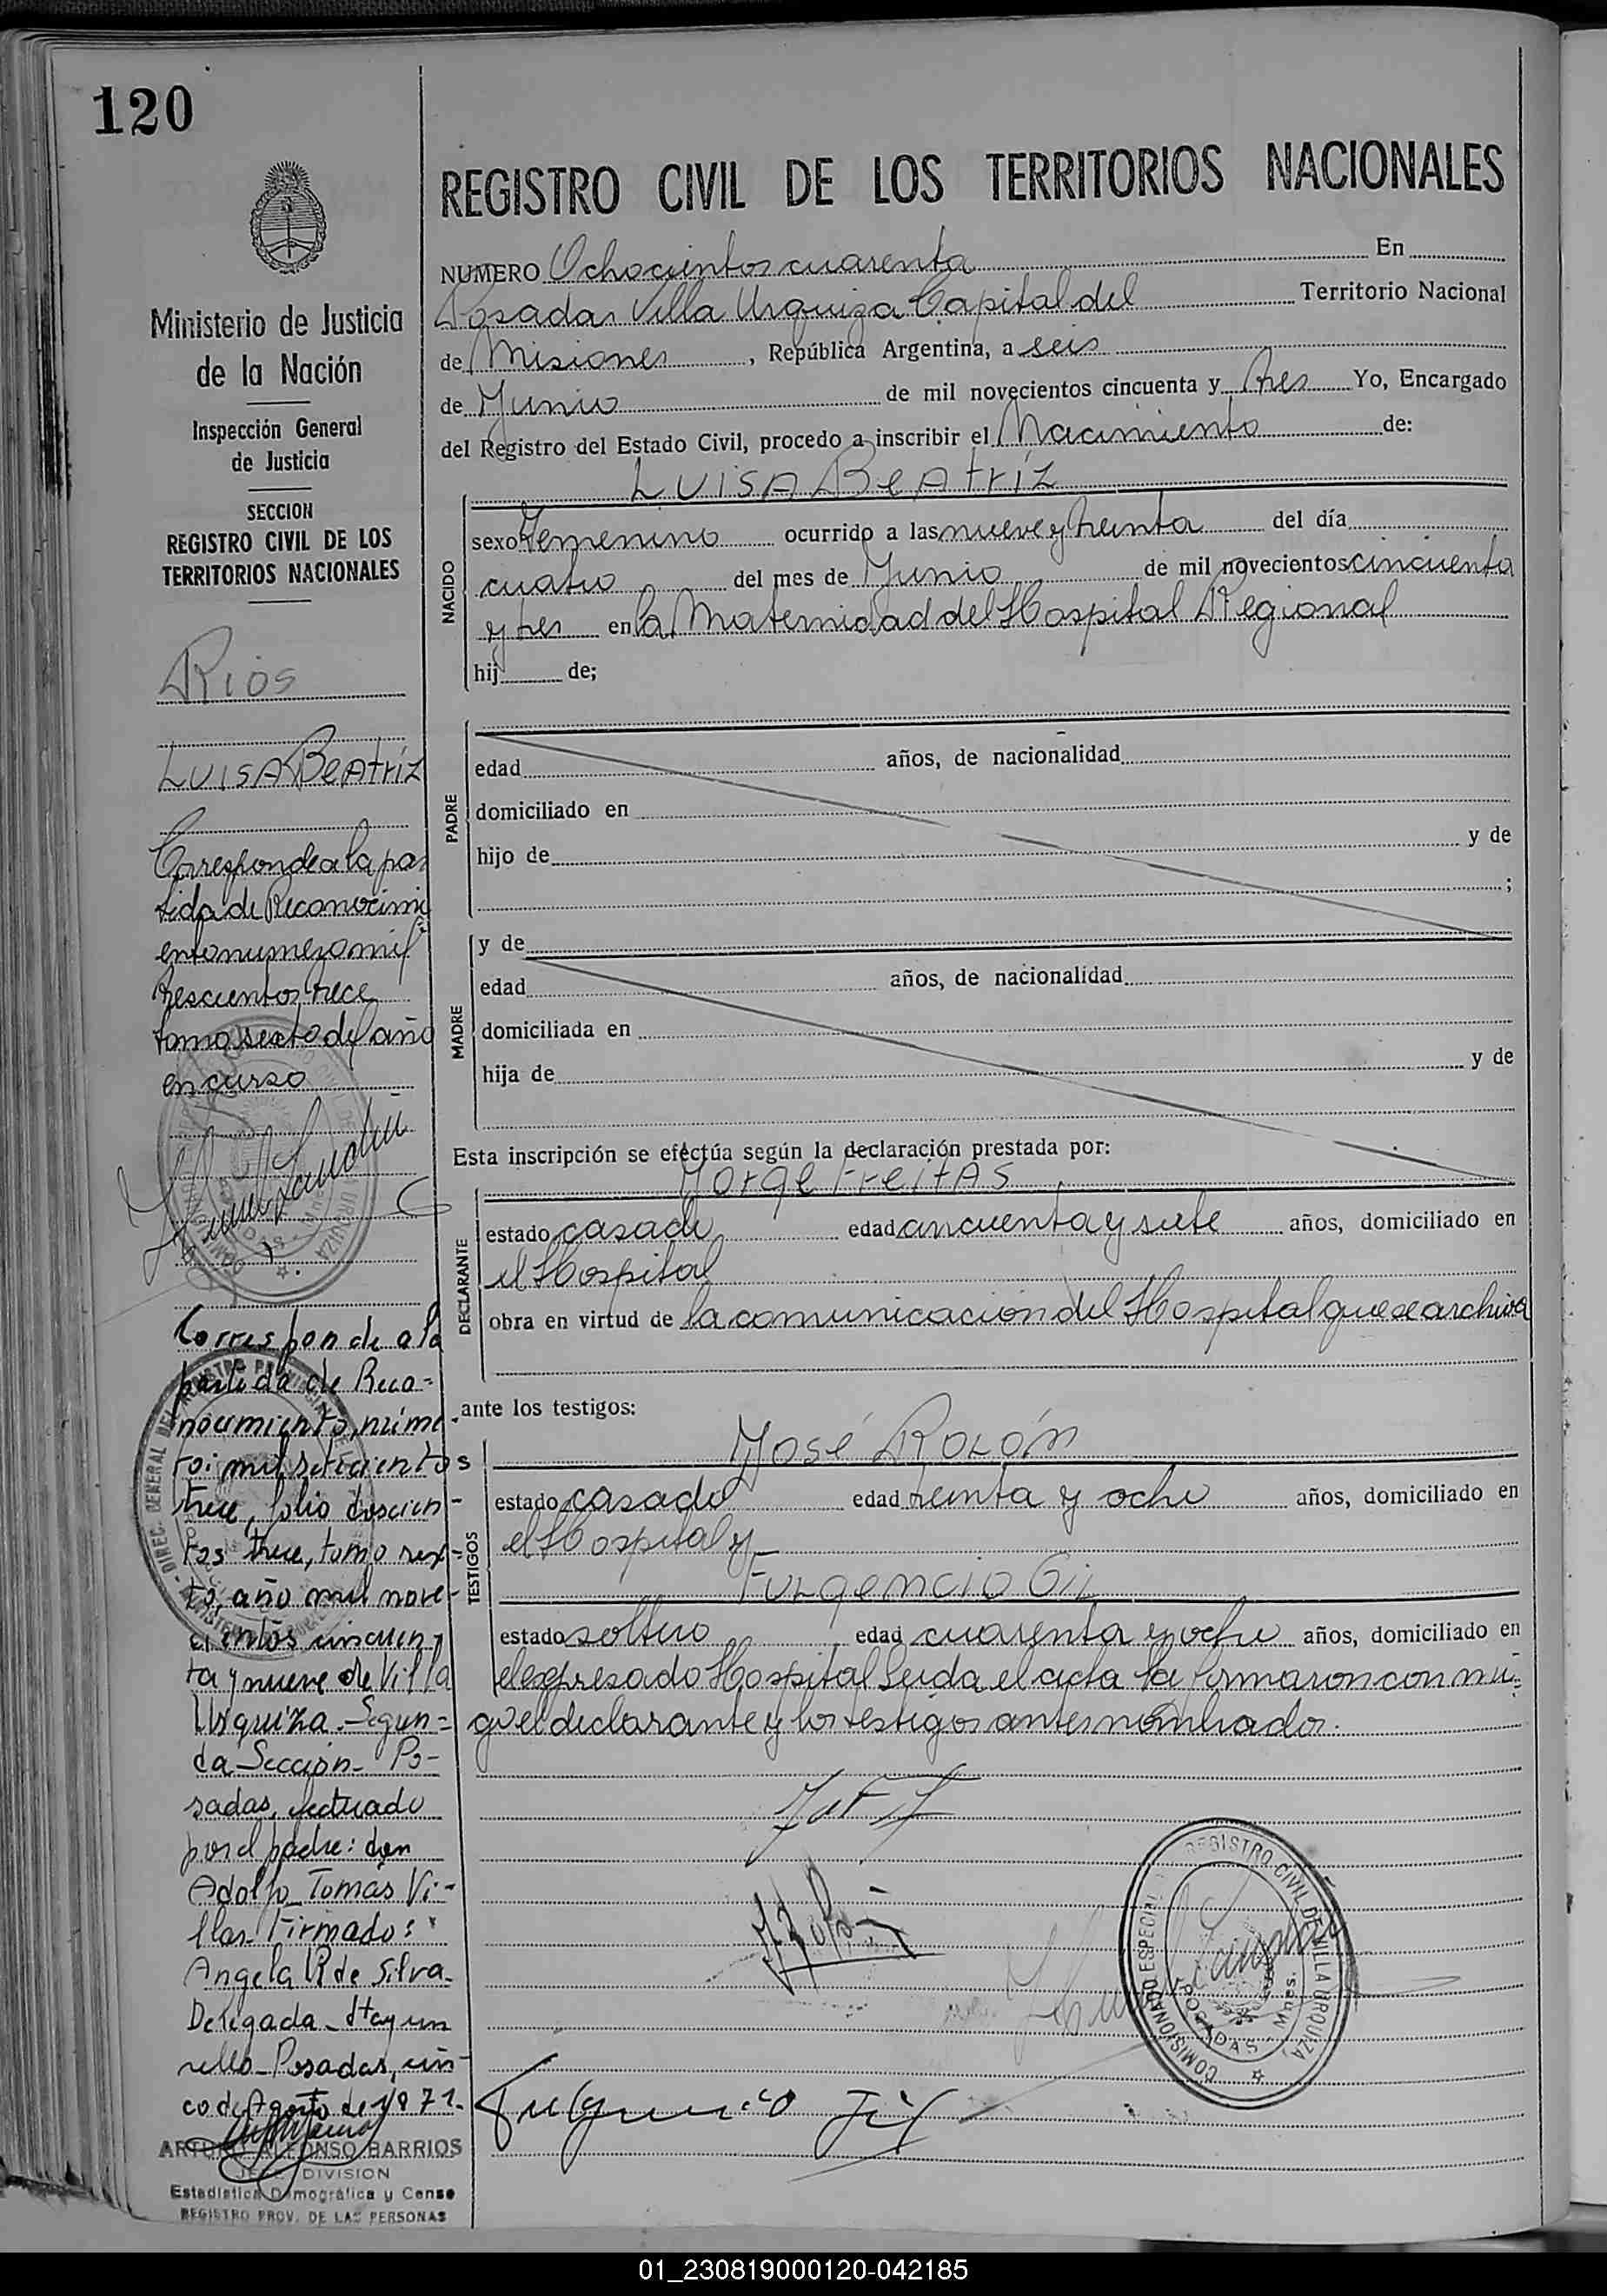 120
Ministerio de Justicia
de la Nación
Inspección General
de Justicia
SECCION
REGISTRO CIVIL DE LOS
TERRITORIOS NACIONALES
Rios
Luisa Beatríz
Corresponde a la par
tida de Reconocimi
ento numero mil
trescientos trece
tomo sexto del año
en curso
Corresponde a la
partida de Reco-
nocimiento, núme-
ro: mil seticientos
trece, folio doscien-
tos trece, tomo sex-
to, año mil nove-
cientos cincuen-
ta y nueve de Villa
Urquiza. Segun=
da Sección- Po-
sadas, efectuado
por el padre: don
Adolfo Tomás Vi-
llar- Firmado:
Angela R de Silva-
Delegada- Hay un
sello- Posadas, cin-
co de Agosto de 1971-
ARTURO ALFONSO BARRIOS
JEFE DIVISION
Estadística Demográfica y Censo
REGISTRO PROV. DE LAS PERSONAS
REGISTRO CIVIL DE LOS TERRITORIOS NACIONALES
NUMERO Ochocientos cuarenta En
Posadas Villa Urquiza Capital del Territorio Nacional
de Misiones, República Argentina, a seis
de Junio de mil novecientos cincuenta y tres Yo, Encargado
del Registro del Estado Civil, procedo a inscribir el Nacimiento de:
Luisa Beatríz
NACIDO
sexo Femenino ocurrido a las nueve y treinta del día
cuatro del mes de Junio de mil novecientos cincuenta
y tres en la Maternidad del Hospital Regional
hij de;
PADRE
edad años, de nacionalidad
domiciliado en
hijo de y de
;
MADRE
y de
edad años, de nacionalidad
domiciliada en
hija de y de
Esta inscripción se efectúa según la declaración prestada por:
Jorge Freitas
DECLARANTE
estado casado edad cincuenta y siete años, domiciliado en
el Hospital
obra en virtud de la comunicacion del Hospital que se archiva
ante los testigos:
José Rolón
TESTIGOS
estado casado edad treinta y ocho años, domiciliado en
el Hospital y
Fulgencio Gil
estado soltero edad cuarenta y ocho años, domiciliado en
el expresado Hospital Leida el acta la firmaron con mi=
go el declarante y los testigos antes nombrados.
REGISTRO CIVIL DE VILLA URQUIZA
COMISIONADO ESPECIAL
POSADAS - Mnes.
Fulgencio Gil
01_230819000120-042185